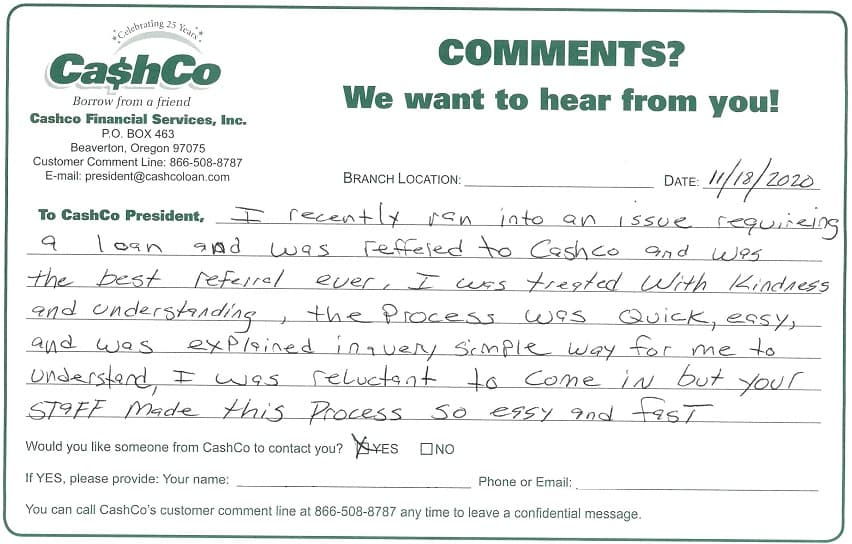 Celebrating 25 Years
Ca$hCo
Borrow from a friend
Cashco Financial Services, Inc.
P.O. BOX 463
Beaverton, Oregon 97075
Customer Comment Line: 866-508-8787
E-mail: president@cashcoloan.com
COMMENTS?
We want to hear from you!
BRANCH LOCATION: DATE: 11/18/2020
To CashCo President, I recently ran into an issue requireing
a loan and was reffered to Cashco and was
the best referral ever, I was treated with Kindness
and understanding, the Process was Quick, easy,
and was explained in a very simple way for me to
understand, I was reluctant to come in but your
STAFF Made this Process so easy and fast
Would you like someone from CashCo to contact you? YES NO
If YES, please provide: Your name: Phone or Email:
You can call CashCo's customer comment line at 866-508-8787 any time to leave a confidential message.